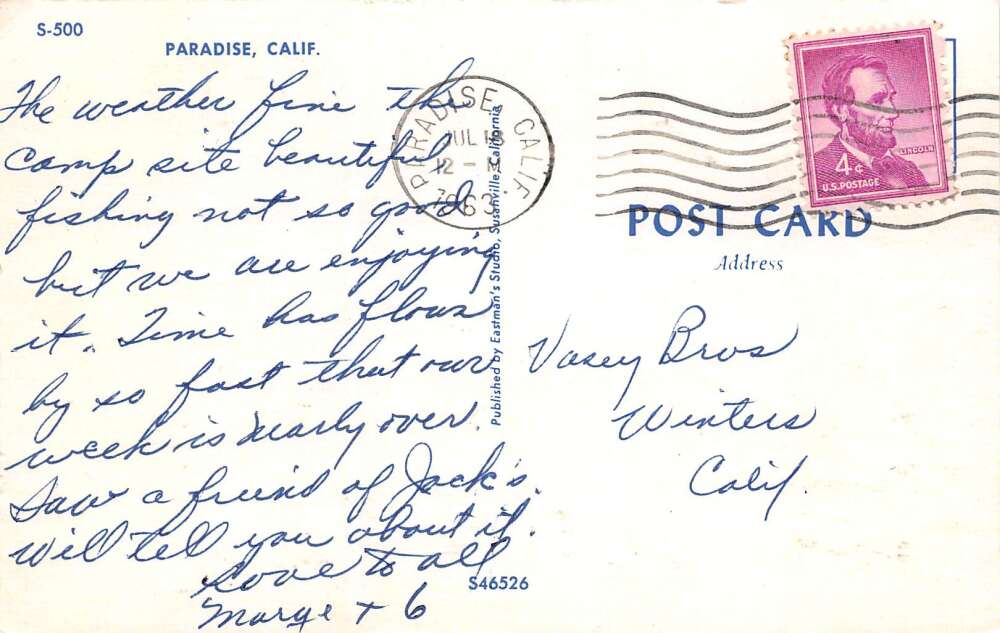 S-500
PARADISE, CALIF.
The weather fine the
camp site beautiful
fishing not so good
but we are enjoying
it. Time has flown
by so fast that our
week is nearly over.
Saw a friend of Jack's.
will tell you about it.
Love to all
Marge + 6
PARADISE, CALIF.
JUL 18
12 - M
1963
Published by Eastman's Studio, Susanville, California
S46526
LINCOLN
4¢
U.S. POSTAGE
POST CARD
Address
Vasey Bros
Winters
Calif.